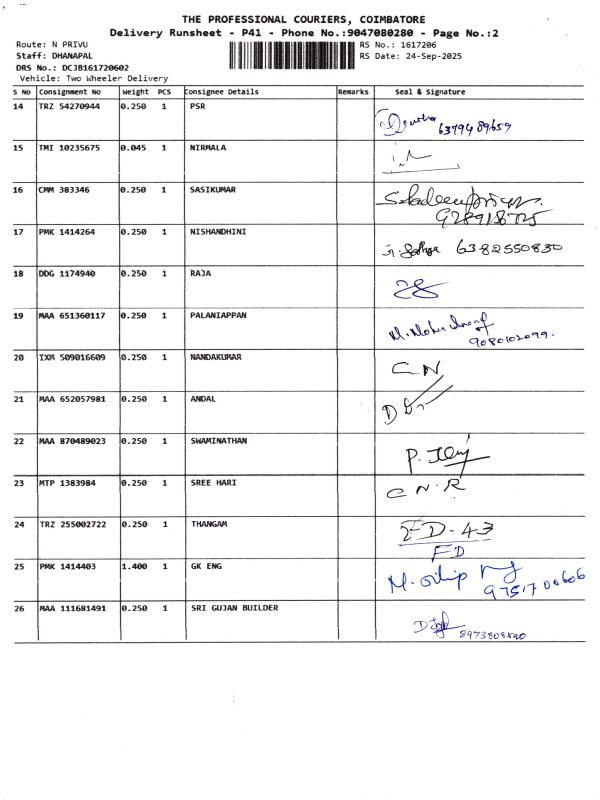 THE PROFESSIONAL COURIERS, COIMBATORE
Delivery Runsheet - P41 - Phone No.:9047080280 - Page No.:2
Route: N PRIVU RS No.: 1617206
Staff: DHANAPAL RS Date: 24-Sep-2025
DRS No.: DCJB161720602
Vehicle: Two Wheeler Delivery
S No Consignment No Weight PCS Consignee Details Remarks Seal & Signature
14 TRZ 54270944 0.250 1 PSR
6379489659
15 TMI 10235675 0.045 1 NIRMALA
16 CMM 383346 0.250 1 SASIKUMAR
17 PMK 1414264 0.250 1 NISHANDHINI
6382550830
18 DDG 1174940 0.250 1 RAJA
19 MAA 651360117 0.250 1 PALANIAPPAN
9080102099.
20 IXM 509016609 0.250 1 NANDAKUMAR
CN
21 MAA 652057981 0.250 1 ANDAL
22 MAA 870489023 0.250 1 SWAMINATHAN
23 MTP 1383984 0.250 1 SREE HARI
C N. R
24 TRZ 255002722 0.250 1 THANGAM
FD-43
FD
25 PMK 1414403 1.400 1 GK ENG
9751700606
26 MAA 111681491 0.250 1 SRI GUJAN BUILDER